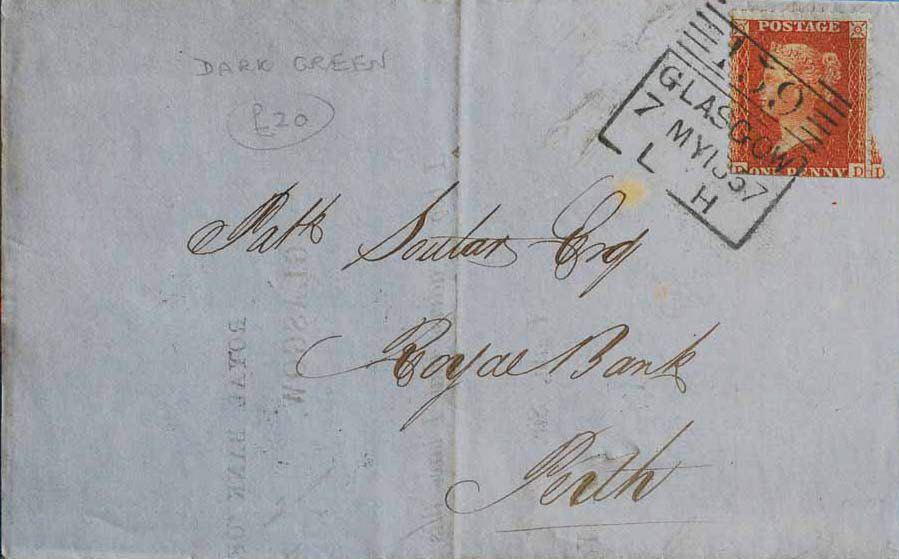 DARK GREEN
£20
POSTAGE
159
ONE PENNY D
GLASGOW
7 MY 1857
L
H
Patk Soutar Esq
Royal Bank
Perth
GLASGOW
ROYAL BANK OF